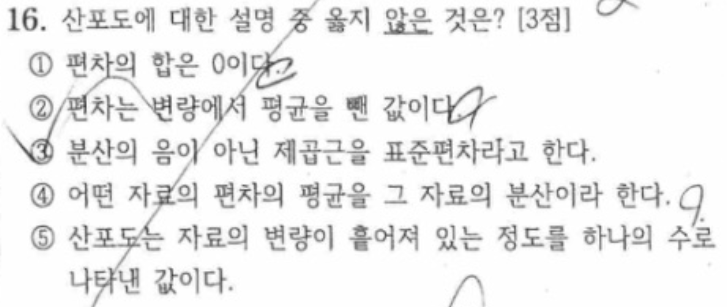 16. 산포도에 대한 설명 중 옳지 않은 것은? [3점]
① 편차의 합은 0이다.
② 편차는 변량에서 평균을 뺀 값이다.
③ 분산의 음이 아닌 제곱근을 표준편차라고 한다.
④ 어떤 자료의 편차의 평균을 그 자료의 분산이라 한다.
⑤ 산포도는 자료의 변량이 흩어져 있는 정도를 하나의 수로
나타낸 값이다.